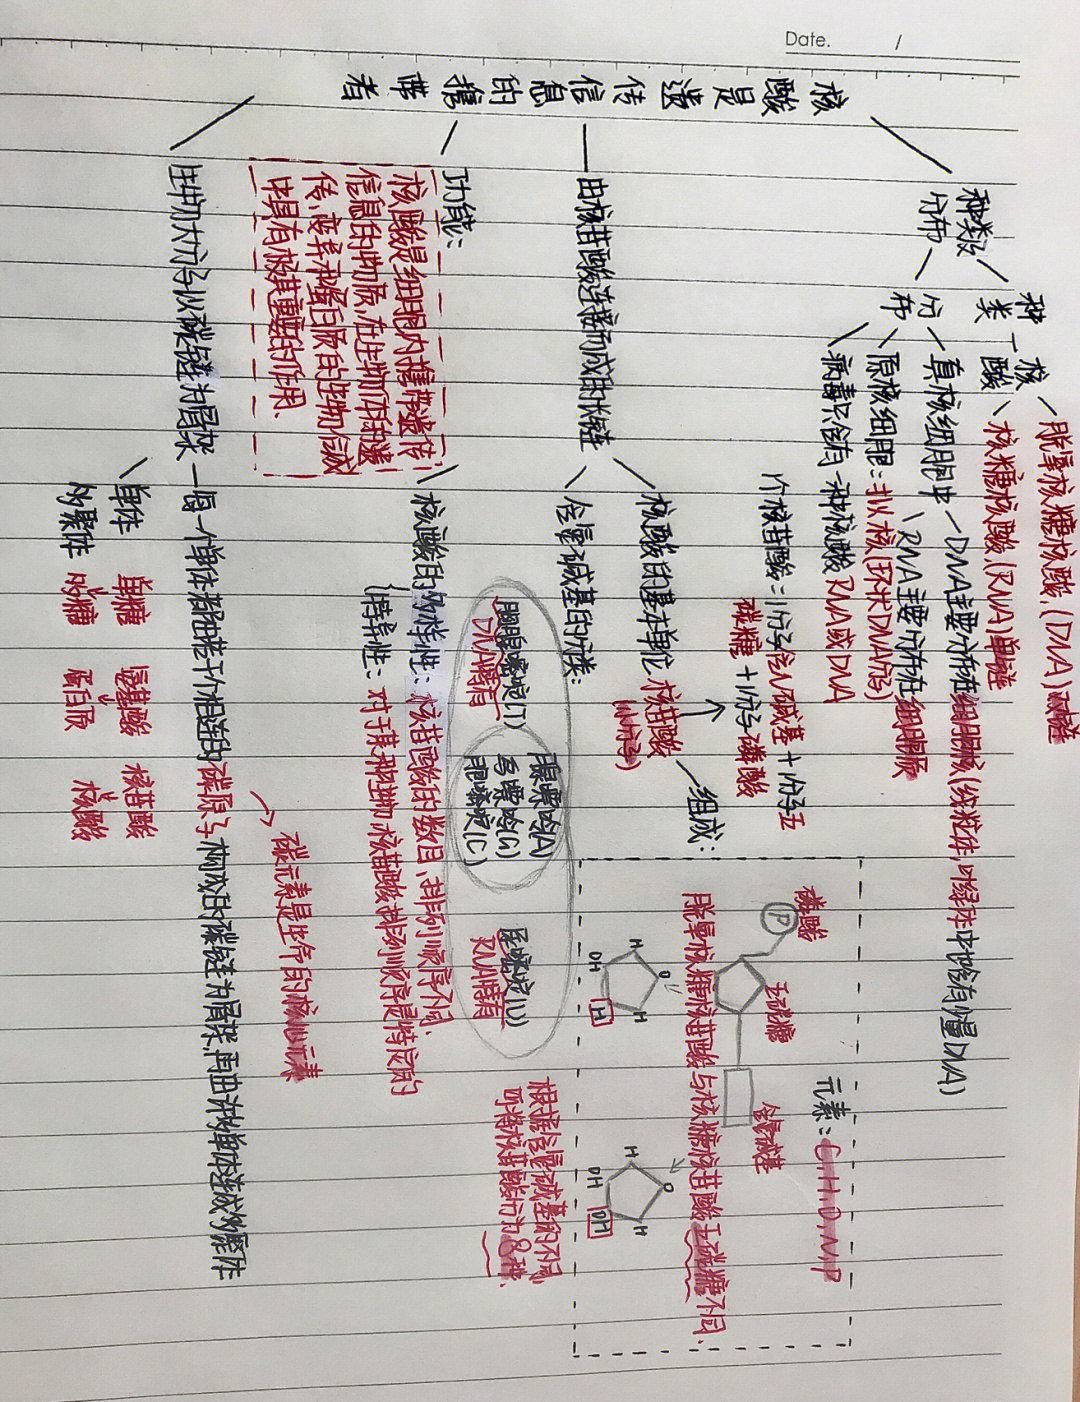 Date. /
核酸是遗传信息的携带者
种类及
分布
种类
核酸
脱氧核糖核酸,(DNA)双链
核糖核酸,(RNA)单链
分布
真核细胞中
DNA主要分布在细胞核(线粒体,叶绿体中也含有少量DNA)
RNA主要分布在细胞质
原核细胞:拟核(环状DNA分子)
病毒只含有一种核酸 RNA或DNA
由核苷酸连接而成的长链
核酸的基本单位 核苷酸
(小分子)
个核苷酸=1份子含N碱基+1份子五
碳糖+1份子磷酸
组成:
元素:C,H,O,N,P
磷酸
P
五碳糖
含氮碱基
脱氧核糖核苷酸与核糖核苷酸五碳糖不同.
O
H
H
OH
H
O
H
H
OH
OH
含氮碱基的分类:
胸腺嘧啶(T)
DNA特有
腺嘌呤(A)
鸟嘌呤(G)
胞嘧啶(C)
尿嘧啶(U)
RNA特有
根据含氮碱基的不同,
可将核苷酸分为8种.
功能:
核酸是细胞内携带遗传
信息的物质,在生物体的遗
传,变异和蛋白质的生物合成
中具有极其重要的作用.
核酸的多样性:核苷酸的数目、排列顺序不同.
特异性:对于某种生物核苷酸排列顺序是特定的
生物大分子以碳链为骨架
每一个单体都包若干个相连的碳原子构成的碳链为骨架,再由许多单体连成多聚体
碳元素是生命的核心元素
单体 单糖 氨基酸 核苷酸
多聚体 多糖 蛋白质 核酸